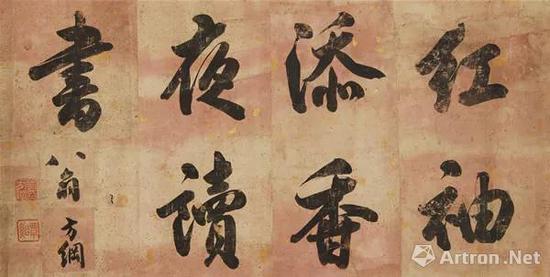 红袖
添香
夜讀
書
翁
方綱
Artron.Net